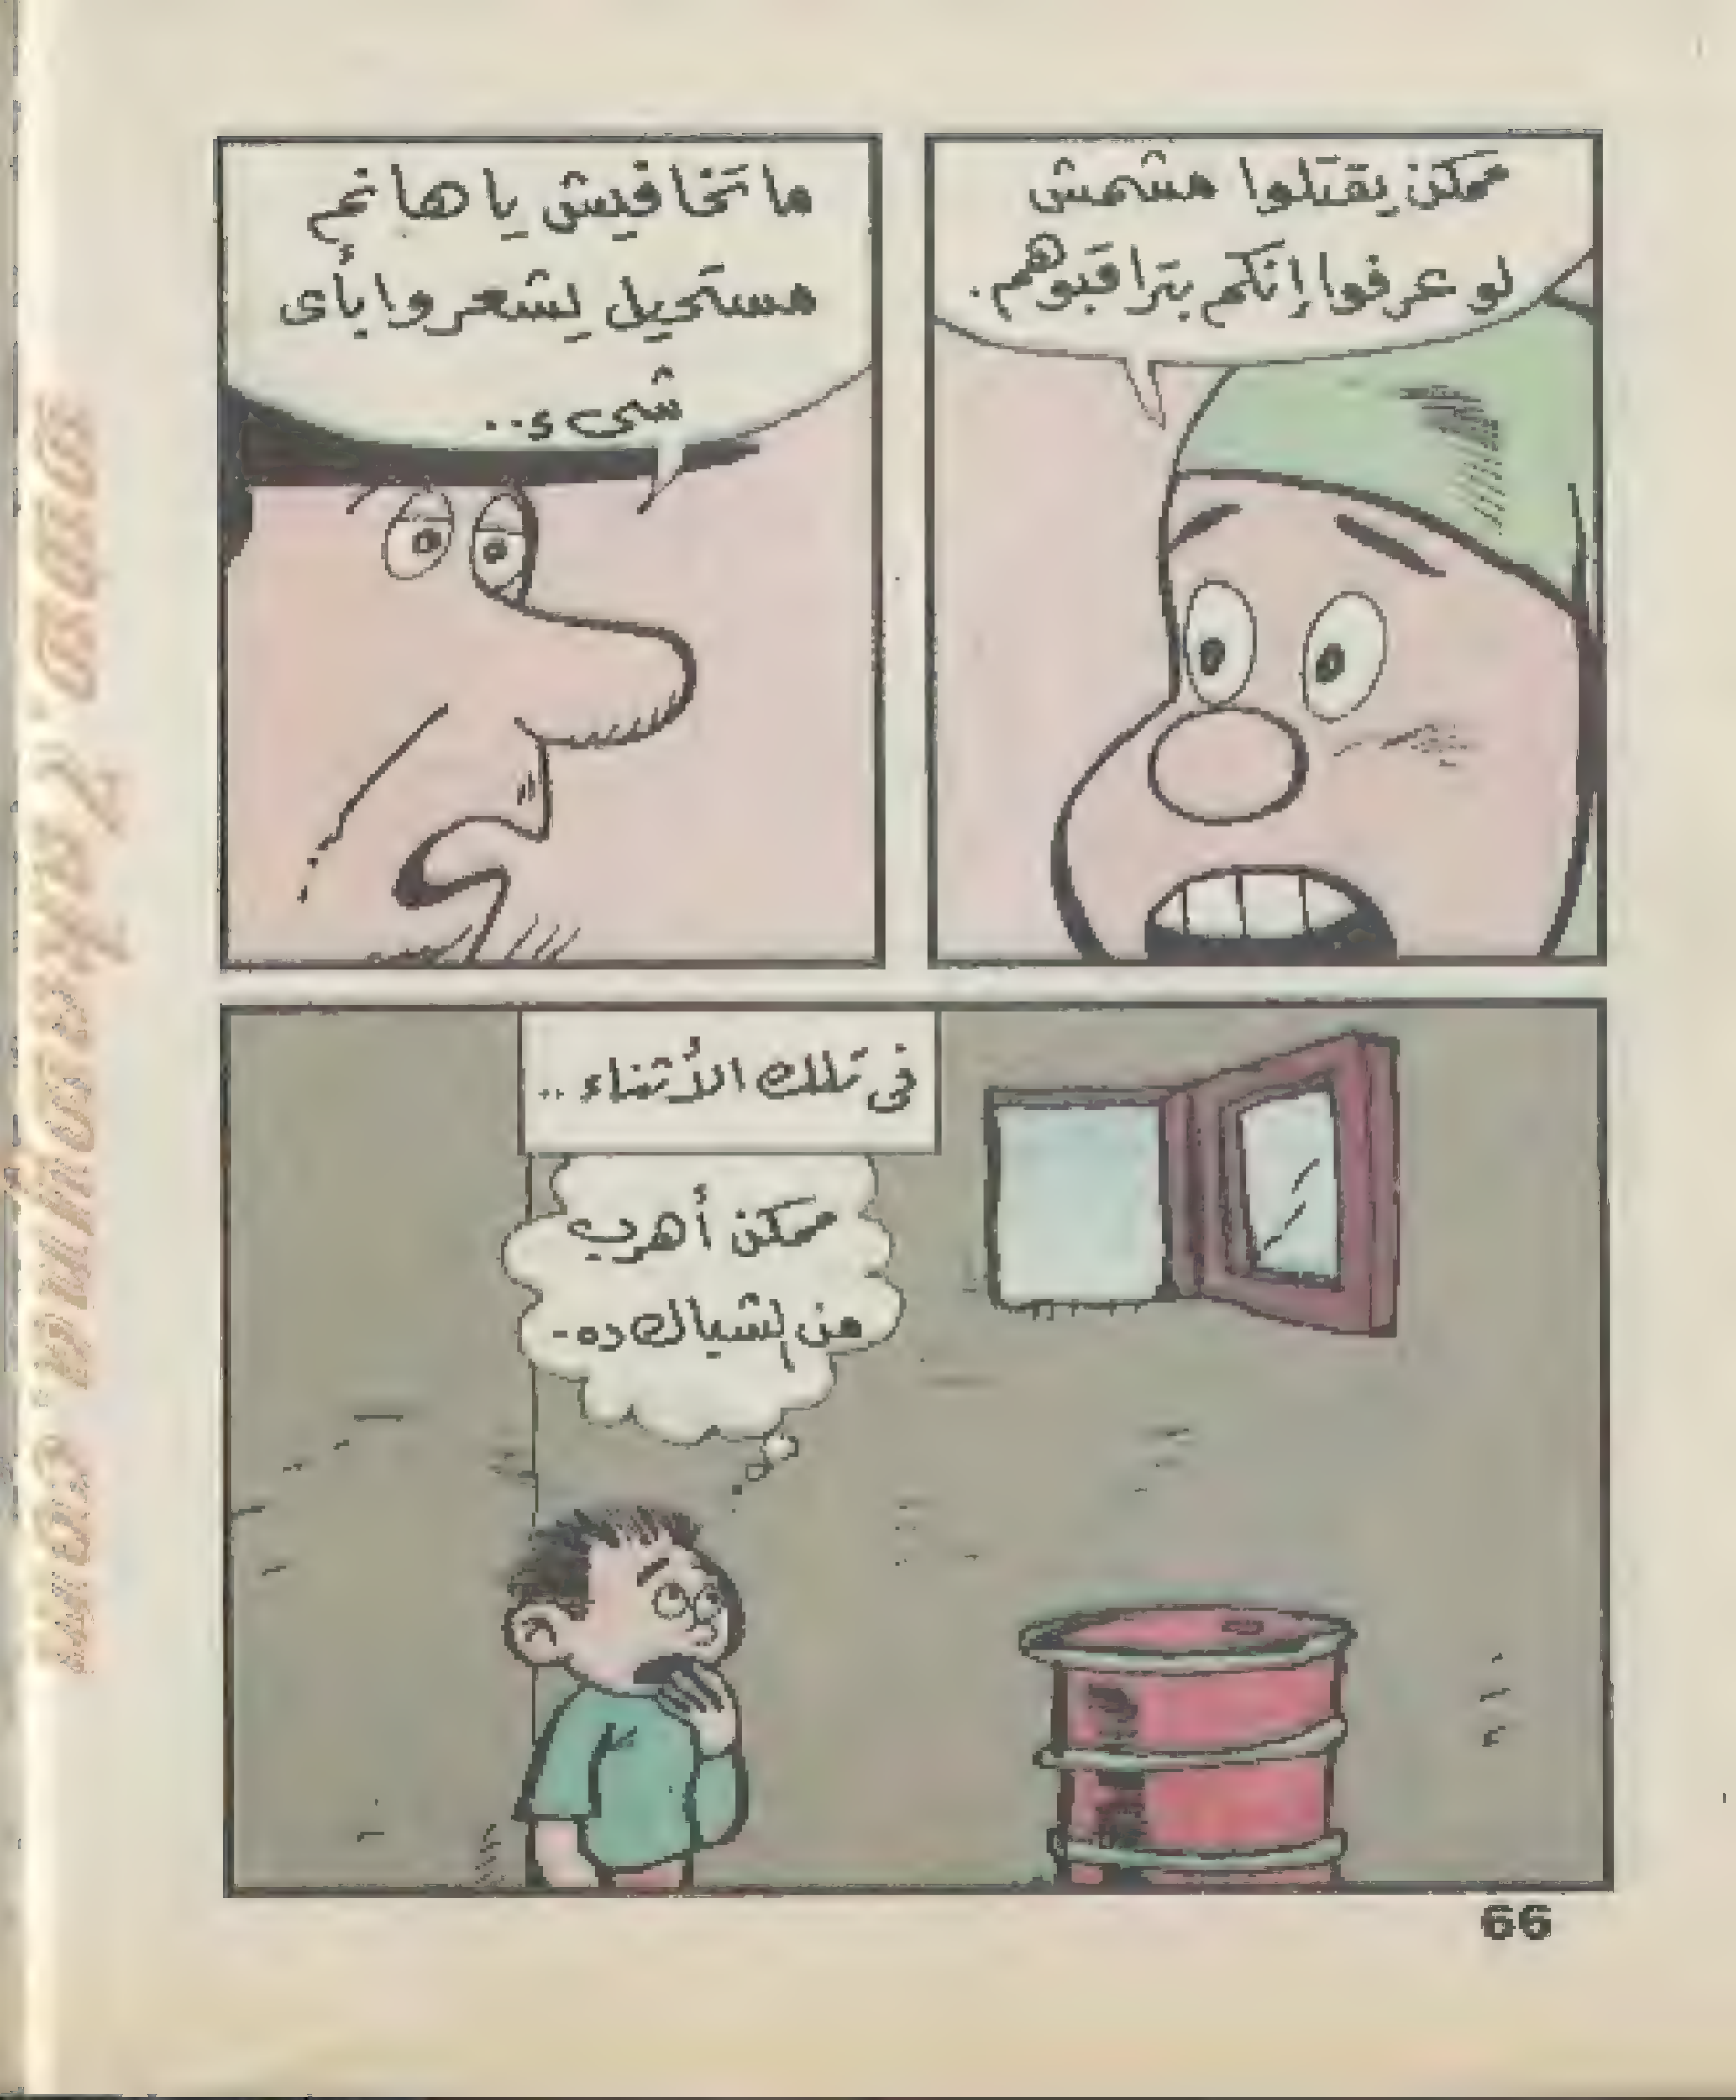 ممكن يقتلوا مشمش
لو عرفوا إنكم بتراقبوهم.
ما تخافيش يا هانم
مستحيل يشعروا بأى
شىء..
فى تلك الأثناء..
ممكن أهرب
من الشباك ده.
66
www.arabcomics.net